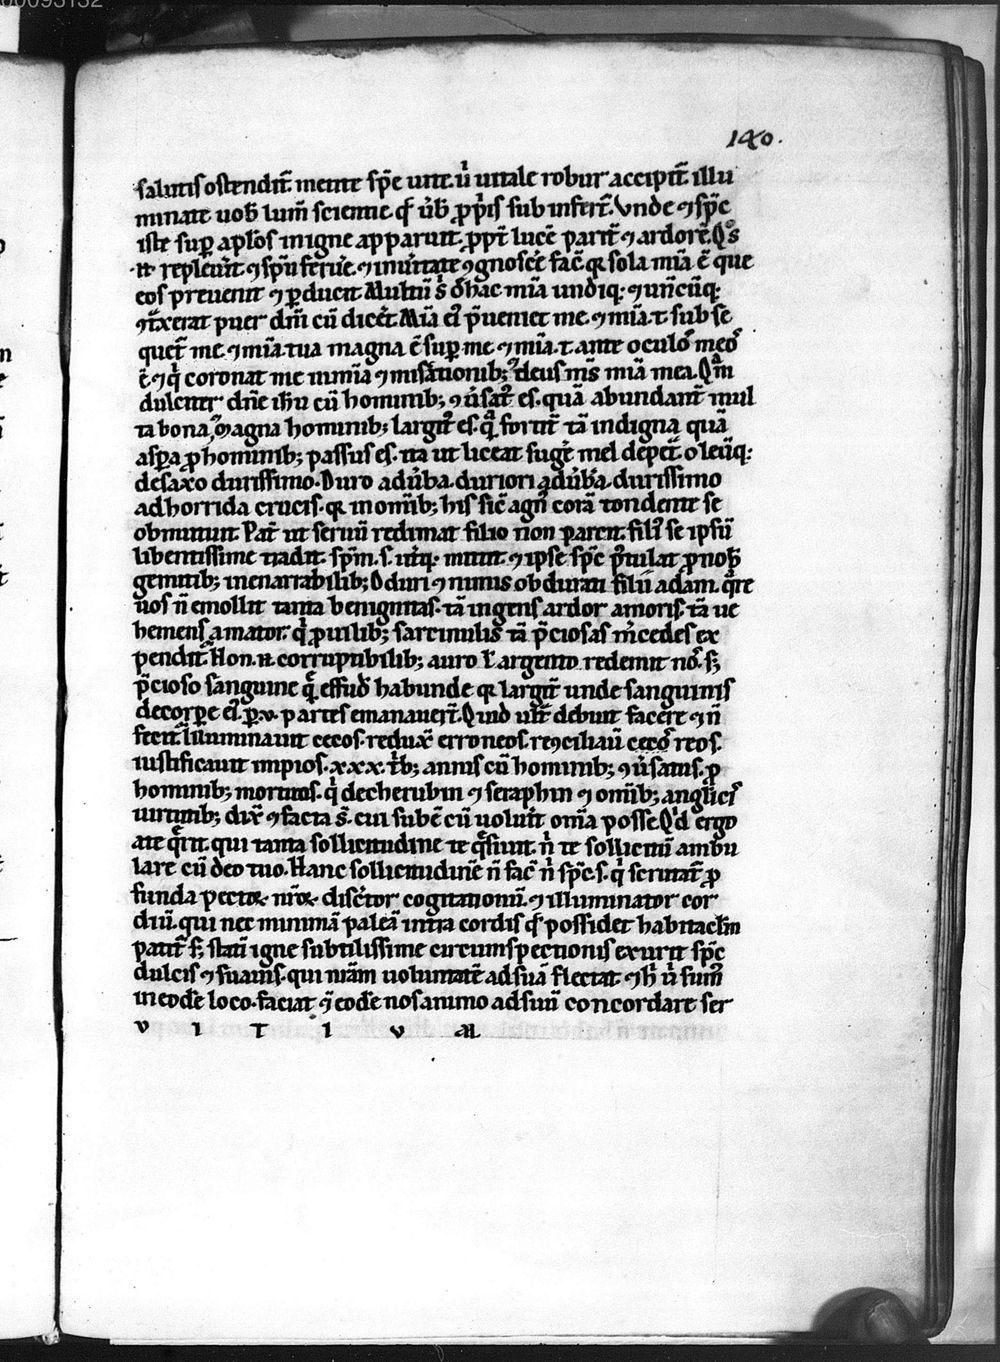 140.
salutis ostendit̄ mente sp̄c unt. u̇ uitale robur accipit̄ illu
minate uob̄ lum̄ scientie. qd̓ ub̓ p̱pris sub infert̄. Vnde ⁊ sp̄c
iste sup̱ apl̄os in igne apparuit. p̱pt̄ lucē parit̄ ⁊ ardorē. Q̊s
.n̄. repleuit̄ ⁊ sp̄u feruē. ⁊ in uitate ꝯgnoscē fac̄. qꝫ sola mīa ē que
eos preuenit ⁊ p̱ducit. Multū hac mīa undiqꝫ ⁊
puer dn̄i cū dicēt. Mīa ei̓ p̄ueniet me. ⁊ mīa. t. sub se
quet̄ me. ⁊ mīa. tua magna ē sup̱ me. ⁊ mīa. t. ante oculos̓ meos̓
ē. ⁊ qi̓ coronat me in mīa ⁊ mis̄ationibꝫ. deus ms̄ mīa mea. Qm̄
dulciter dn̄e ih̄u cū hominibꝫ ꝯu̓sat̓ es. quā abundant̄ mul
ta bona. magna hominibꝫ largit̓ es. q̄ fortit̄ tā indigna quā
asp̱a p̱ hominibꝫ passus es. ita ut liceat sugē mel de pet̄. oleūqꝫ
de saxo durissimo. Duro ad u̓ba. duriori ad u̓b̓a. durissimo
ad horrida crucis. qꝫ in omībꝫ his sic̄ agn̓ corā tondente se
obmutuit. Pat̄ ut seruū redimat filio non parcit. fili̓ se ipsū
libentissime tradit. sp̄m. s. utqꝫ mittit. ⁊ ipse sp̄c p̓tulat p̱ nob̄
gemitibꝫ inenarrabilibꝫ. O duri ⁊ nimis obdurati filii adam. q̄re
uos n̄ emollit tanta benignitas. tā ingens ardor amoris. tā ue
hemens amator. qi̓ p̱ uilibꝫ sarcinulis tā p̄ciosas m̓cedes ex
pendit̄. Non .n̄. corruptibilibꝫ auro l̓ argento redemit nos̓. sꝫ
p̄cioso sanguine qē effud̓ habunde. qꝫ largit̄ unde sanguinis
de corp̱e ei̓. p̱ .v. partes emanauert̄. Quid ult̄ debuit facere ⁊ n̄
fecit. Illuminauit cecos. redux̄ erroneos. reꝯciliauit reos.
iustificauit impios. xxx. tb̓ꝫ annis cū hominibꝫ ꝯu̓satus. p̱
hominibꝫ mortuus. qi̓ de cherubin ⁊ seraphin ⁊ omībꝫ anglicis̓
uirtutibꝫ dix̄ ⁊ facta s̄. cui subē cū uoluit̄ omīa posse. Qd̓ ergo
a te q̄rit. qui tanta sollicitudine te q̄siuit. n̓ te sollicitū ambu
lare cū deo tuo. Hanc sollicitudinē n̄ fac̄ n̓ sp̄c. s. qi̓ scrutat̄ p̱
funda pectoꝝ nr̄oꝝ. disc̓tor cogitationū. ⁊ illuminator cor
diū. qui nec minimā paleā intra cordis qd̓ possidet habitaclm̄
patit̄. sꝫ statī igne subtilissime circumspectionis exurit sp̄c
dulcis ⁊ suauis. qui nr̄am uoluntatē ad suā flectat. ⁊ hi̓ u̓ sum̓
in eodē loco. faciat ⁊ eodē nos animo ad suū concordare ser
v i t i v m